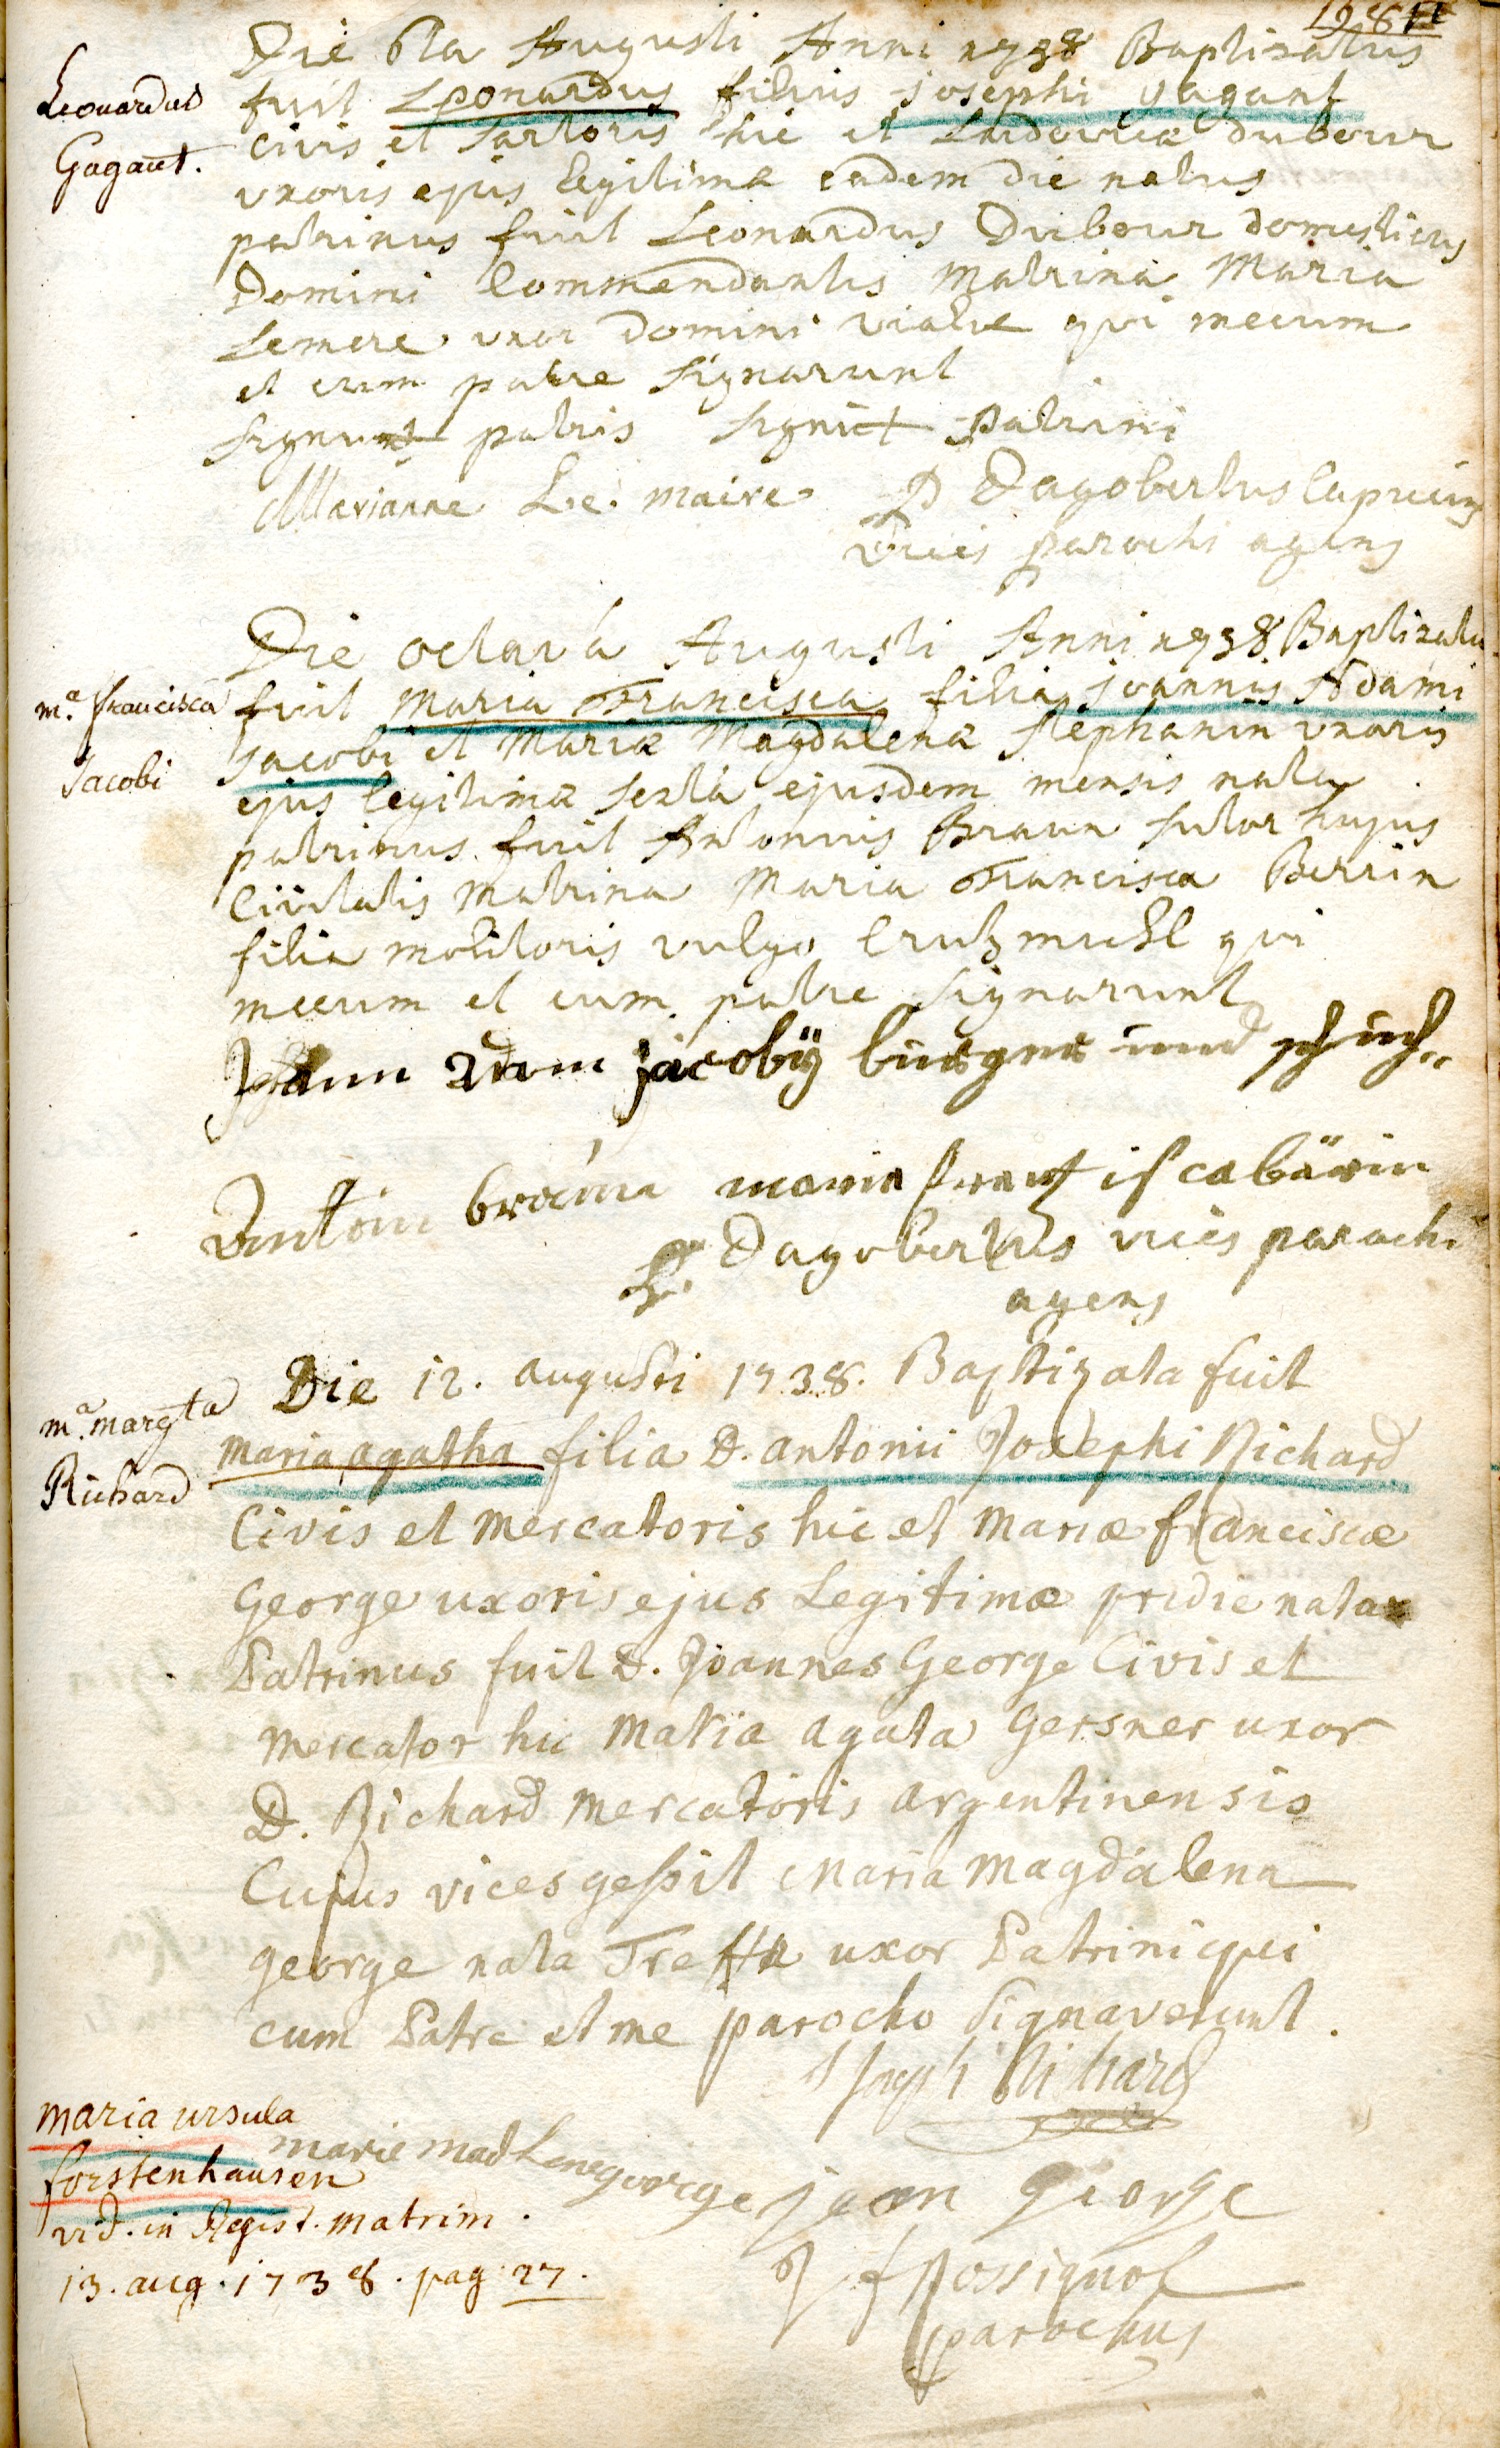 Leonardus
Gagant.
Die 6ta Augusti Anni 1738 Baptizatus
fuit Leonardus filius josephi gagant
Civis et Sartoris hic et Ludovicæ dubour
uxoris ejus legitimæ eadem die natus
patrinus fuit Leonardus Dubour domesticus
Domini Commendantis Matrina Maria
Lemere uxor domini qui mecum
et cum patre Signarunt
patris patrini
Marianne Le maire P Dagobertus Capucinus
vices parochi agens
mª. francisca
Jacobi
Die octavâ Augusti Anni 1738 Baptizata
fuit Maria Francisca filia joannis Adami
Jacobi et Mariæ Magdalenæ Stephanin uxoris
ejus legitimæ sextâ ejusdem mensis nata
patrinus fuit Antonius Braun sutor hujus
Civitatis Matrina Maria Francisca Berrin
filia molitoris vulgo qui
mecum et cum patre Signarunt
adam jacobÿ burger und
Antoni maria frantzisca bärin
P. Dagobertus vices parochi
agens
mª. margta
Richard
Die 12. augusti 1738. Baptizata fuit
maria agatha filia D. antonii Josephi Richard
Civis et Mercatoris hic et Mariæ franciscæ
George uxoris ejus Legitimæ pridie nata
Patrinus fuit D. Joannes George Civis et
Mercator hic Matria agata Gersner uxor
D. Richard Mercatoris argentinensis
Cujus vices gessit Maria Magdalena
george nata uxor Patrini qui
cum Patre et me parocho Signaverunt.
Joseph Richard
maria ursula
forstenhausen
vid. in Regist. matrim.
13. aug. 1738. pag. 27.
marie mad Lene george jean George
J f Rossignol
parochus